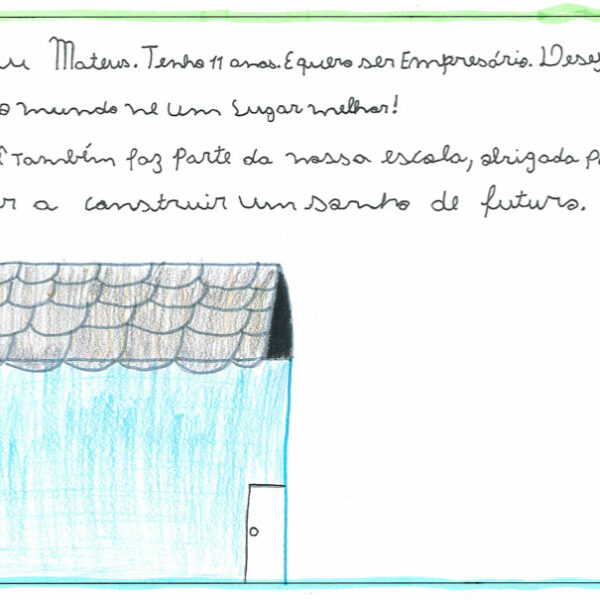 u Mateus. Tenho 11 anos. E quero ser Empresário. Desej
o mundo ne um lugar melhor!
ê Também faz parte da nossa escola, obrigada p
r a construir um sonho de futuro.